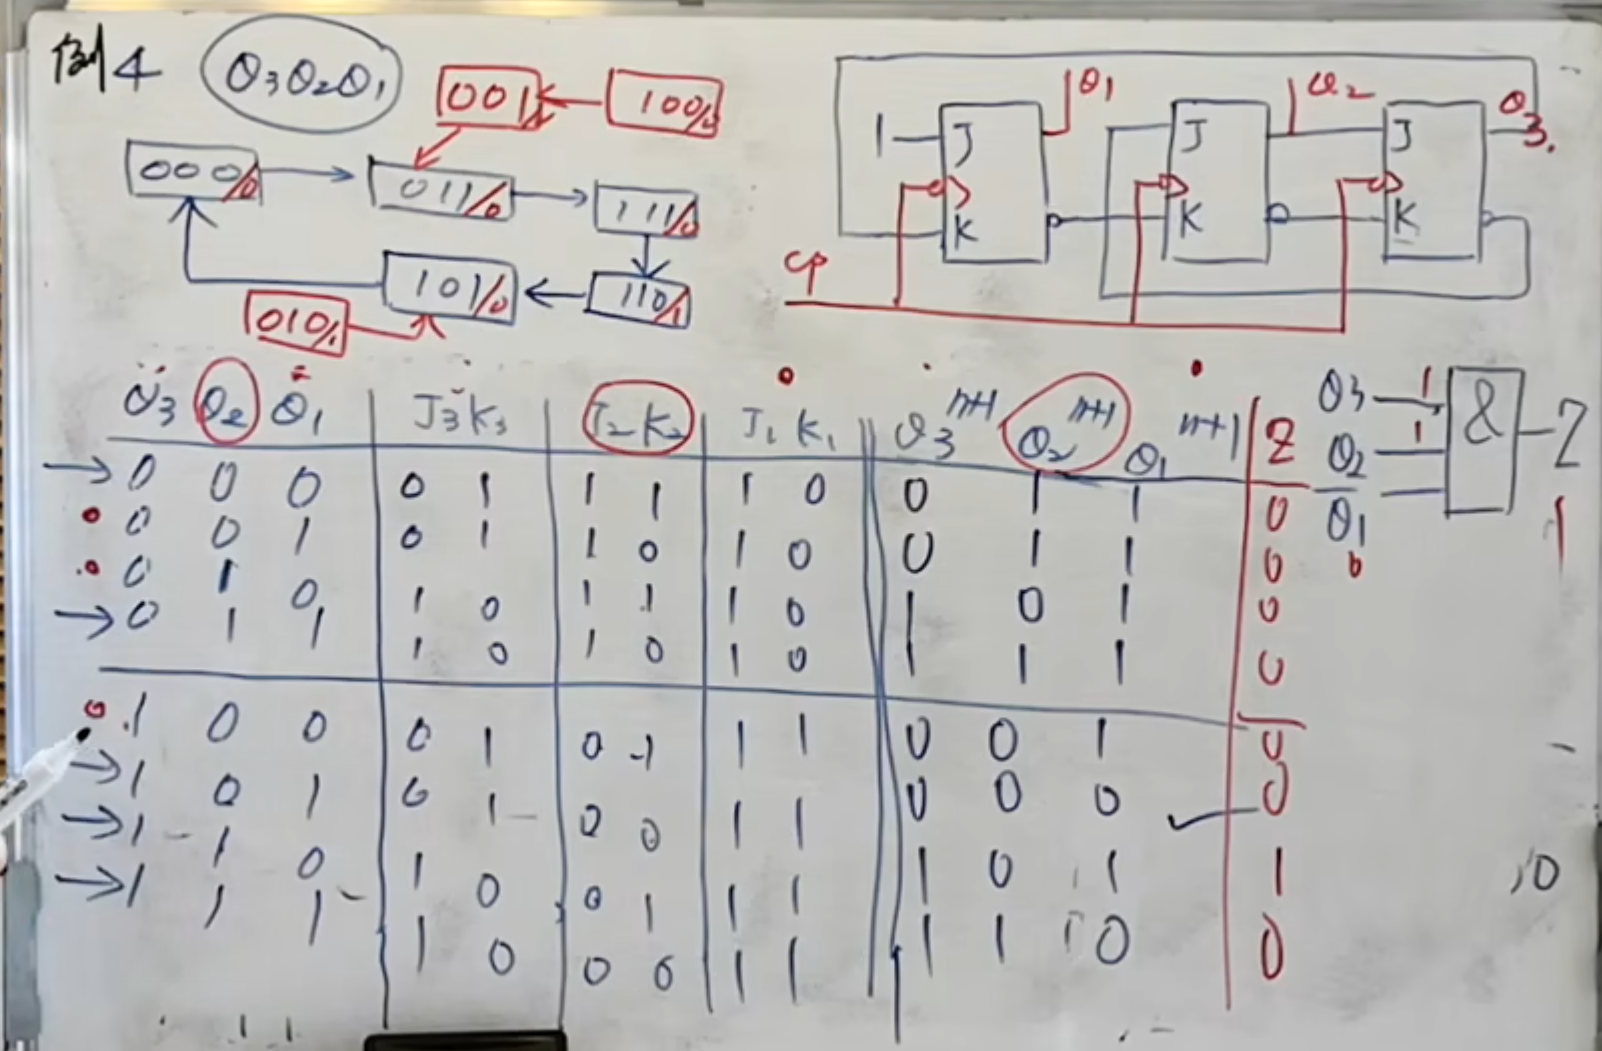 例4 Q3Q2Q1
001/ 100/0
000/0 011/0 111/0
101/0 110/1
010/
1 J K Q1 J K Q2 J K Q3.
CP
Q3 Q2 Q1 J3 K3 J2 K2 J1 K1 Q3 n+1 Q2 n+1 Q1 n+1 Z
0 0 0 0 1 1 1 1 0 0 1 1 0
0 0 1 0 1 1 0 1 0 0 1 1 0
0 1 0 1 0 1 1 1 0 1 0 1 0
0 1 1 1 0 1 0 1 0 1 1 1 0
1 0 0 0 1 0 1 1 1 0 0 1 0
1 0 1 0 1 0 0 1 1 0 0 0 0
1 1 0 1 0 0 1 1 1 1 0 1 1
1 1 1 1 0 0 0 1 1 1 1 0 0
Q3 1 & Z
Q2 1
Q̅1 0 1
10